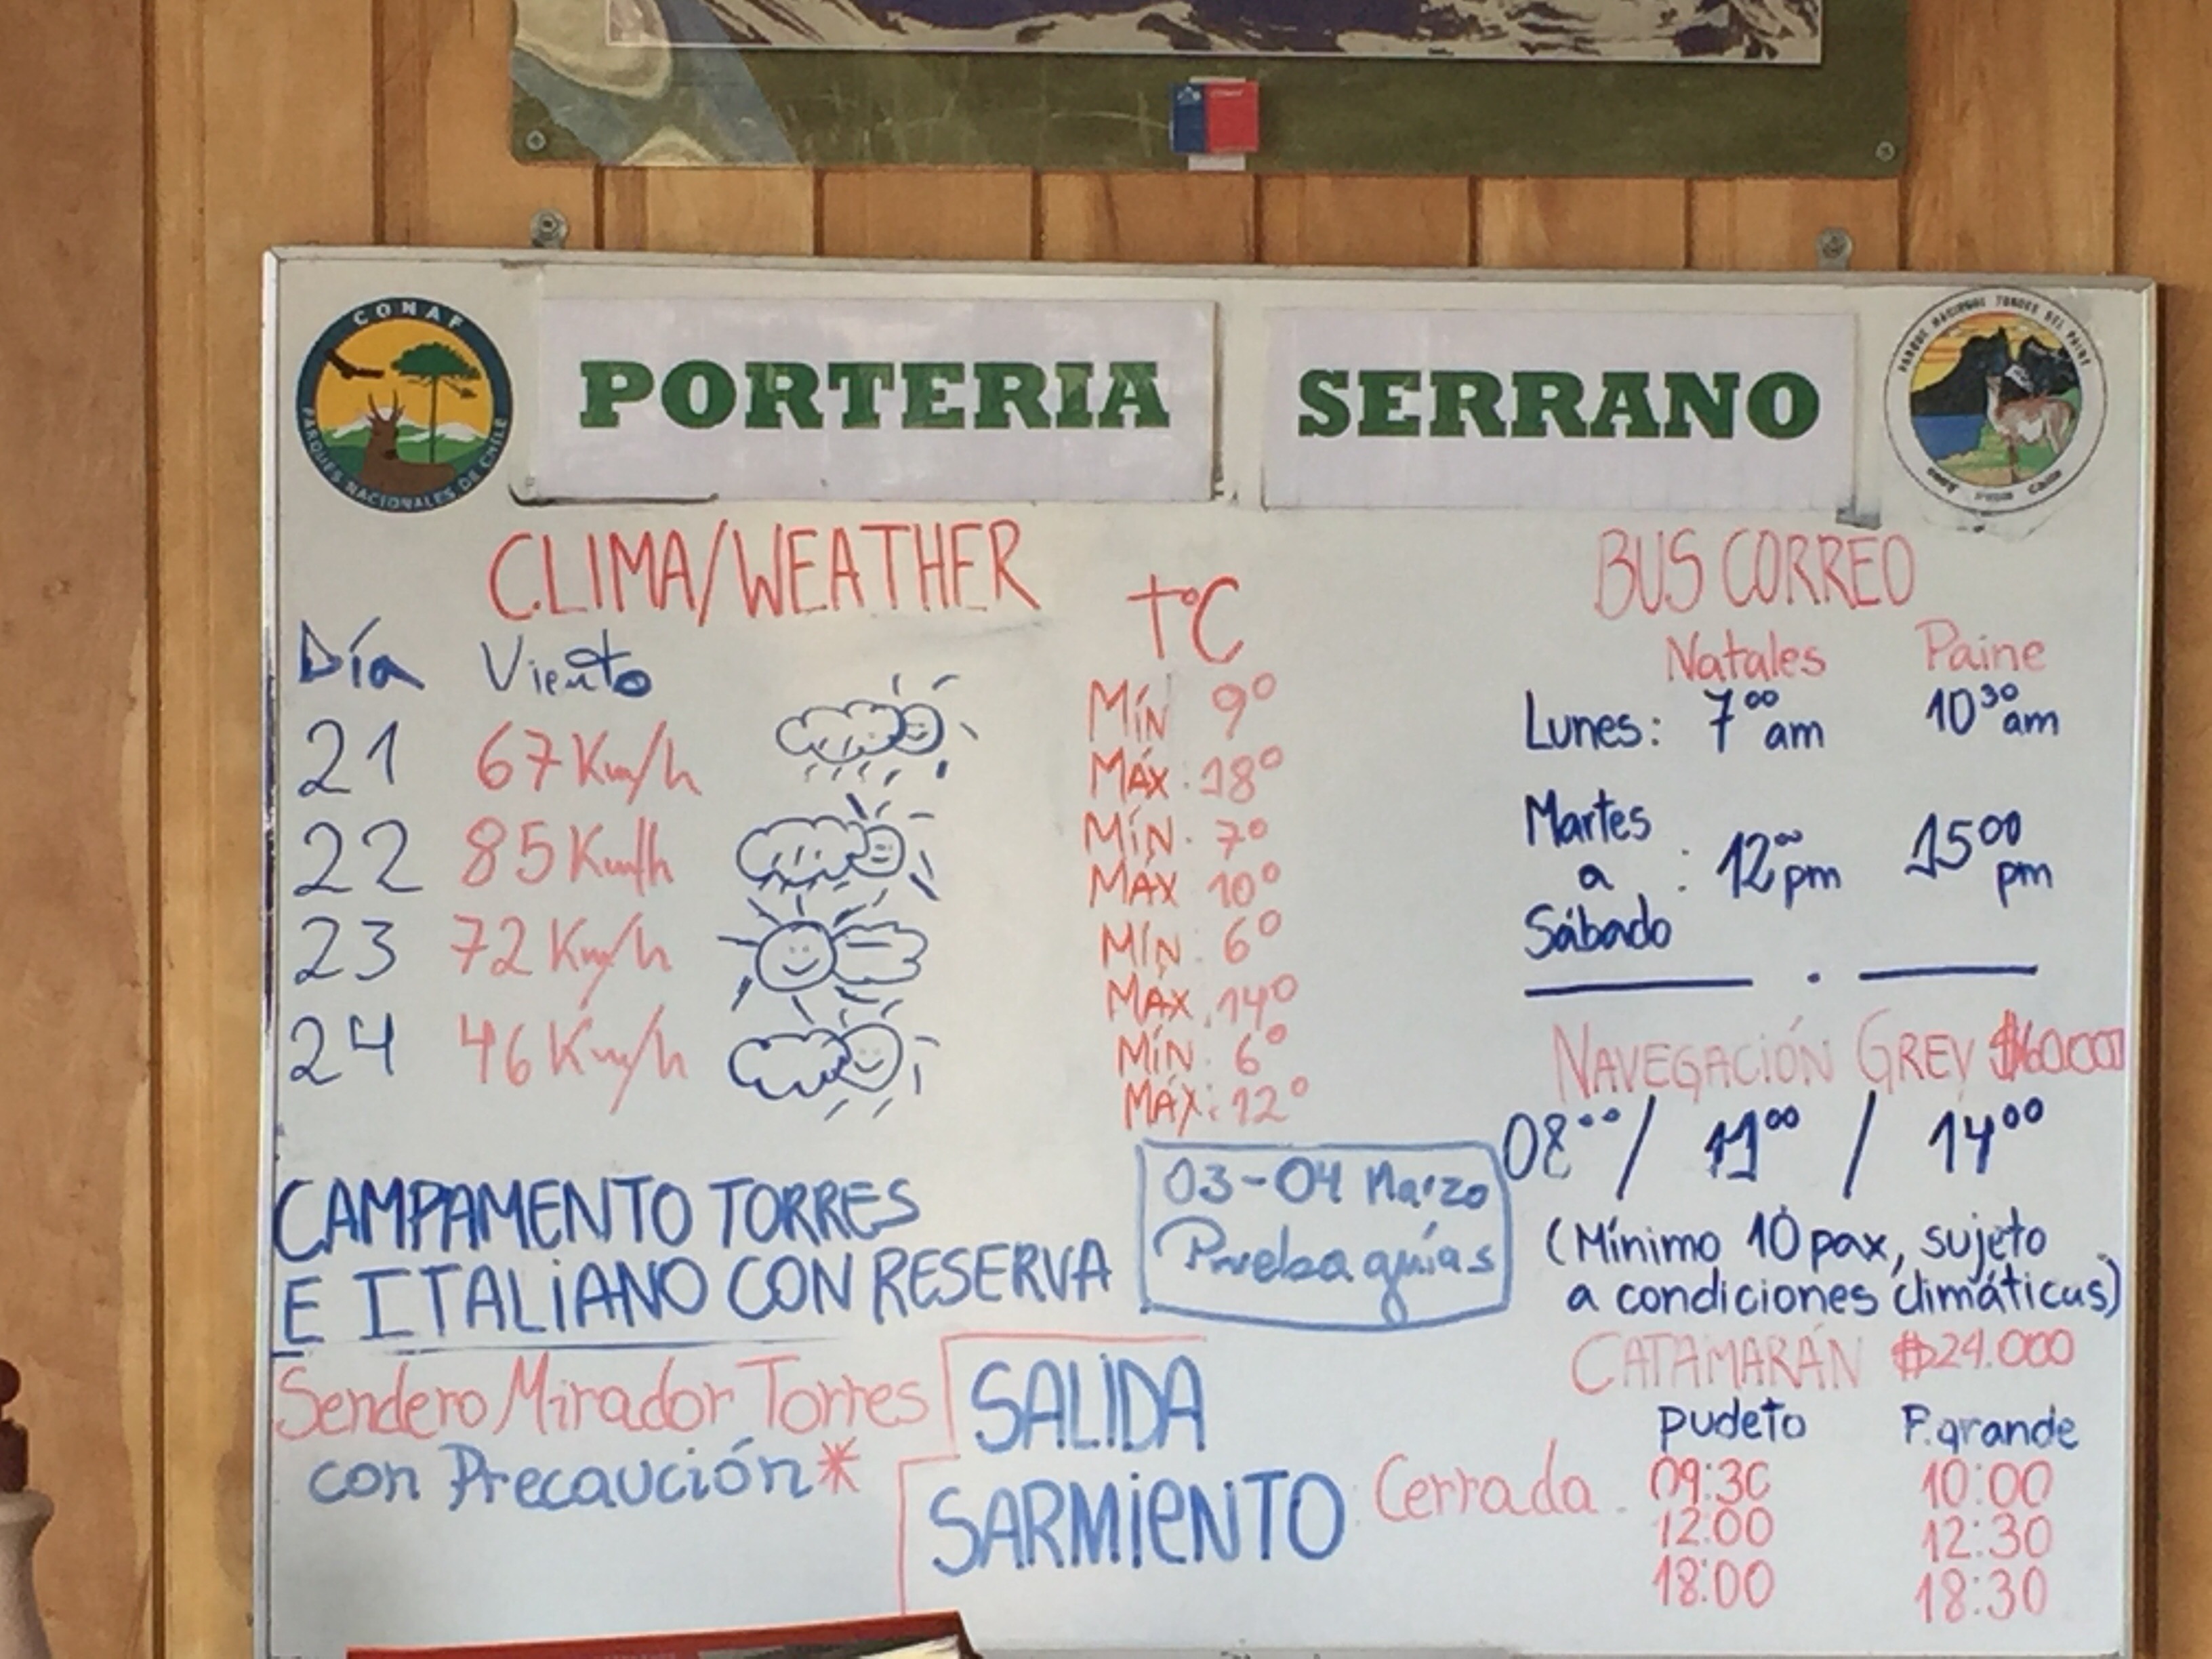 CONAF
PARQUES NACIONALES DE CHILE
PORTERIA SERRANO
PARQUE NACIONAL TORRES DEL PAINE
CLIMA/WEATHER
t°C
Día Viento
21 67 Km/h Mín 9°
Máx: 18°
22 85 Km/h Mín. 7°
Máx 10°
23 72 Km/h Mín. 6°
Máx. 14°
24 46 Km/h Mín. 6°
Máx: 12°
BUS CORREO
Natales Paine
Lunes: 7⁰⁰ am 10³⁰ am
Martes
a : 12⁰⁰ pm 15⁰⁰ pm
Sábado
NAVEGACIÓN GREY
08⁰⁰ / 11⁰⁰ / 14⁰⁰
(Mínimo 10 pax, sujeto
a condiciones climáticas)
CATAMARÁN $24.000
Pudeto P.grande
09:30 10:00
12:00 12:30
18:00 18:30
CAMPAMENTO TORRES
E ITALIANO CON RESERVA
03-04 Marzo
Prueba guías
Sendero Mirador Torres
con Precaución*
SALIDA
SARMIENTO Cerrada.